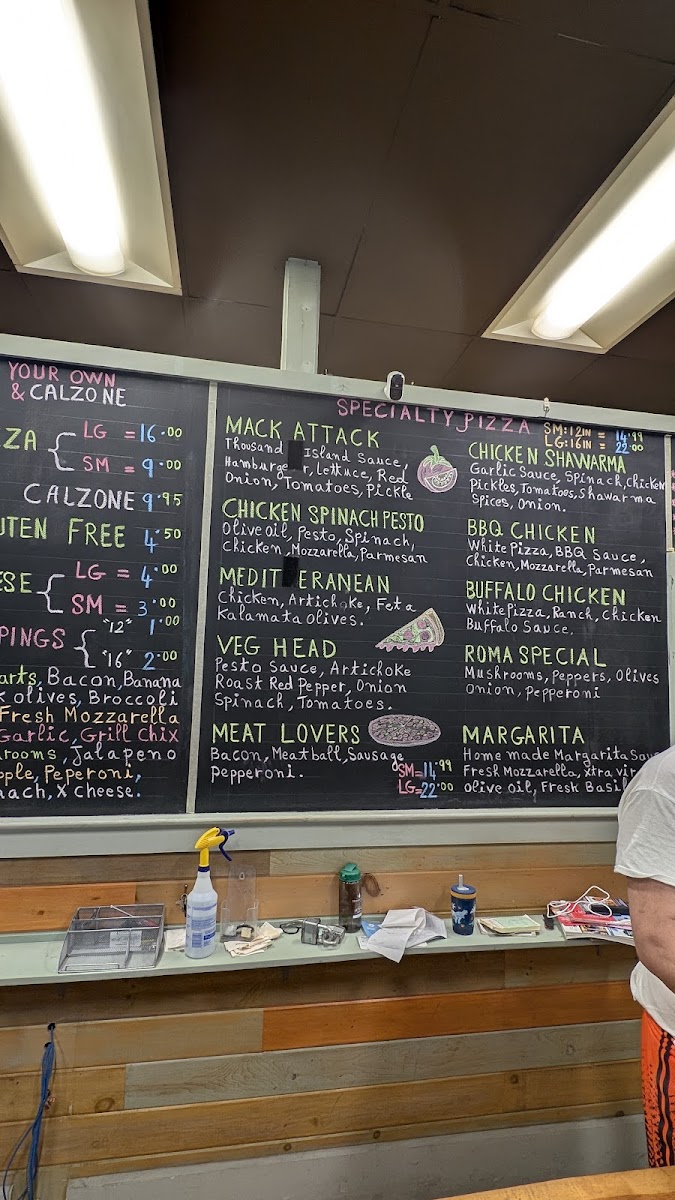 YOUR OWN
& CALZONE
ZA LG = 16.00
SM = 9.00
CALZONE 9.95
UTEN FREE 4.50
ESE LG = 4.00
SM = 3.00
PPINGS "12" 1.00
"16" 2.00
arts, Bacon, Banana
k olives, Broccoli
Fresh Mozzarella
Garlic, Grill Chix
rooms, Jalapeno
pple, Peperoni,
nach, X cheese.
SPECIALTY PIZZA
SM:12IN = 14.99
LG:16IN = 22.00
MACK ATTACK
Thousand Island Sauce,
Hamburge r, Lettuce, Red
Onion, Tomatoes, Pickle
CHICKEN SPINACH PESTO
Olive oil, Pesto, Spinach,
Chicken, Mozzarella, Parmesan
MEDIT ERANEAN
Chicken, Artichoke, Feta
Kalamata olives.
VEG HEAD
Pesto Sauce, Artichoke
Roast Red Pepper, Onion
Spinach, Tomatoes.
MEAT LOVERS
Bacon, Meatball, Sausage
Pepperoni.
SM=14.99
LG=22.00
CHICKEN SHAWARMA
Garlic Sauce, Spinach, chicken
pickles, Tomatoes, Shawarma
Spices, Onion.
BBQ CHICKEN
White Pizza, BBQ Sauce,
Chicken, Mozzarella, Parmesan
BUFFALO CHICKEN
White Pizza, Ranch, Chicken
Buffalo Sauce,
ROMA SPECIAL
Mushrooms, Peppers, Olives
Onion, Pepperoni
MARGARITA
Home made Margarita Sauc
Fresh Mozzarella, xtra vir
olive oil, Fresh Basil